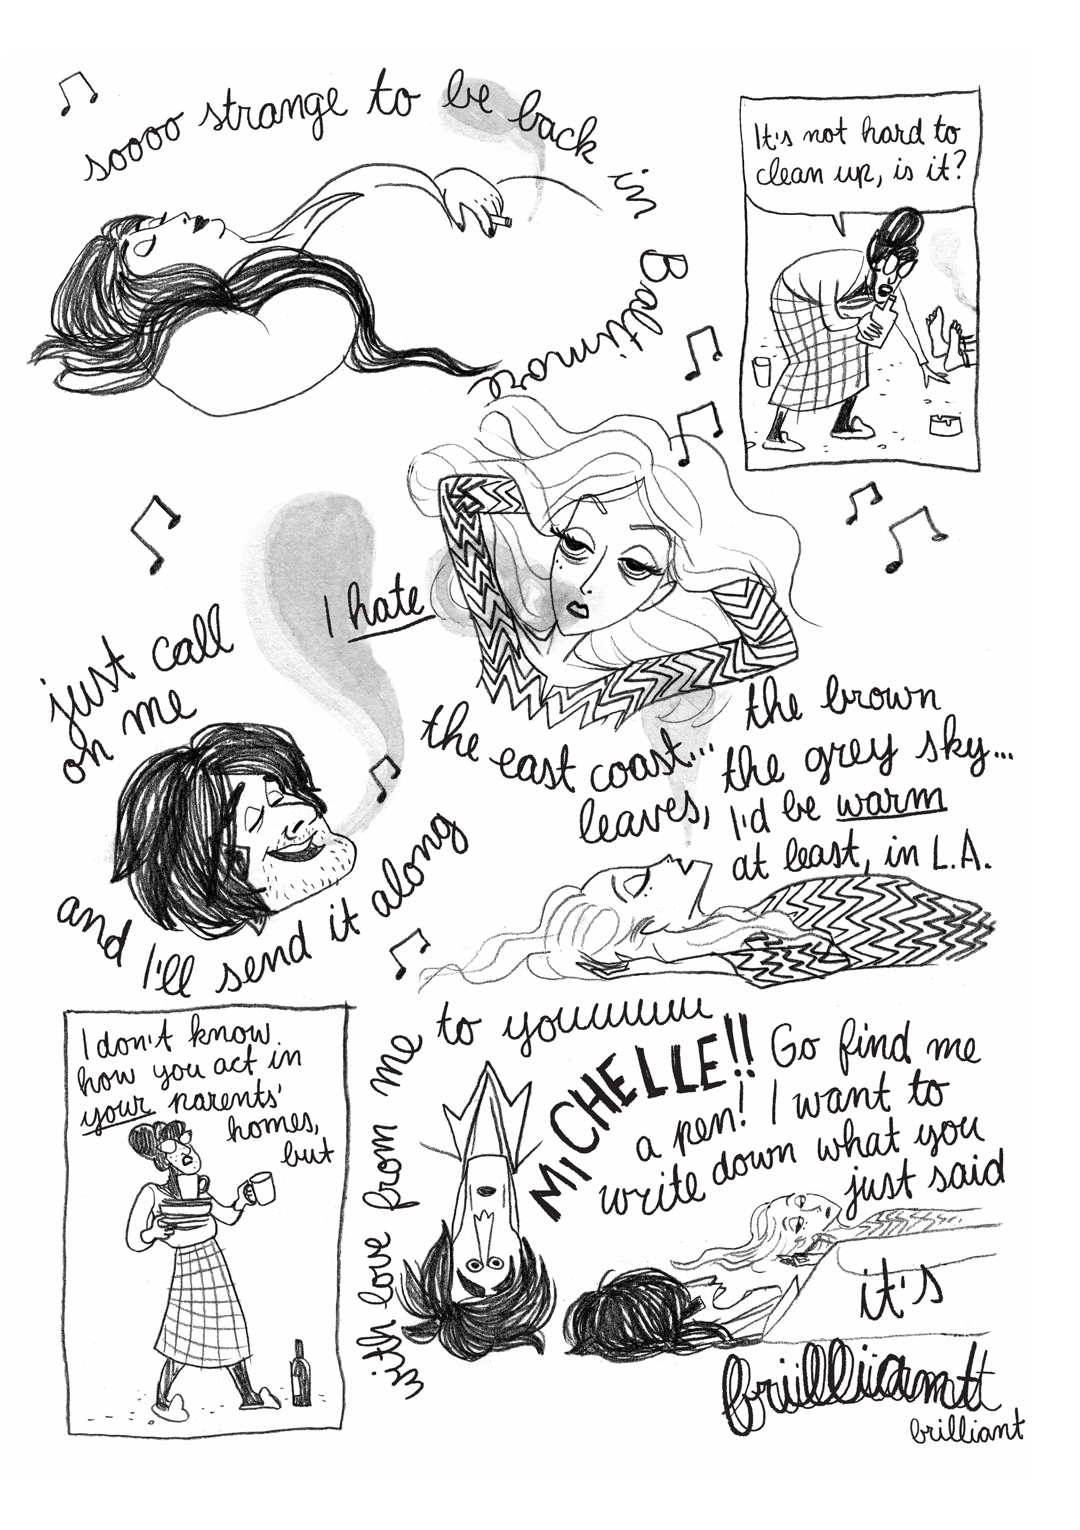 soooo strange to be back in Baltimore
It's not hard to
clean up, is it?
I hate
the east coast...
the brown
leaves,
the grey sky...
I'd be warm
at least, in L.A.
just call
on me
and I'll send it along
with love from me to youuuuuu
I don't know
how you act in
your parents'
homes,
but
MICHELLE!! Go find me
a pen! I want to
write down what you
just said
it's
brüllüamtt
brilliant